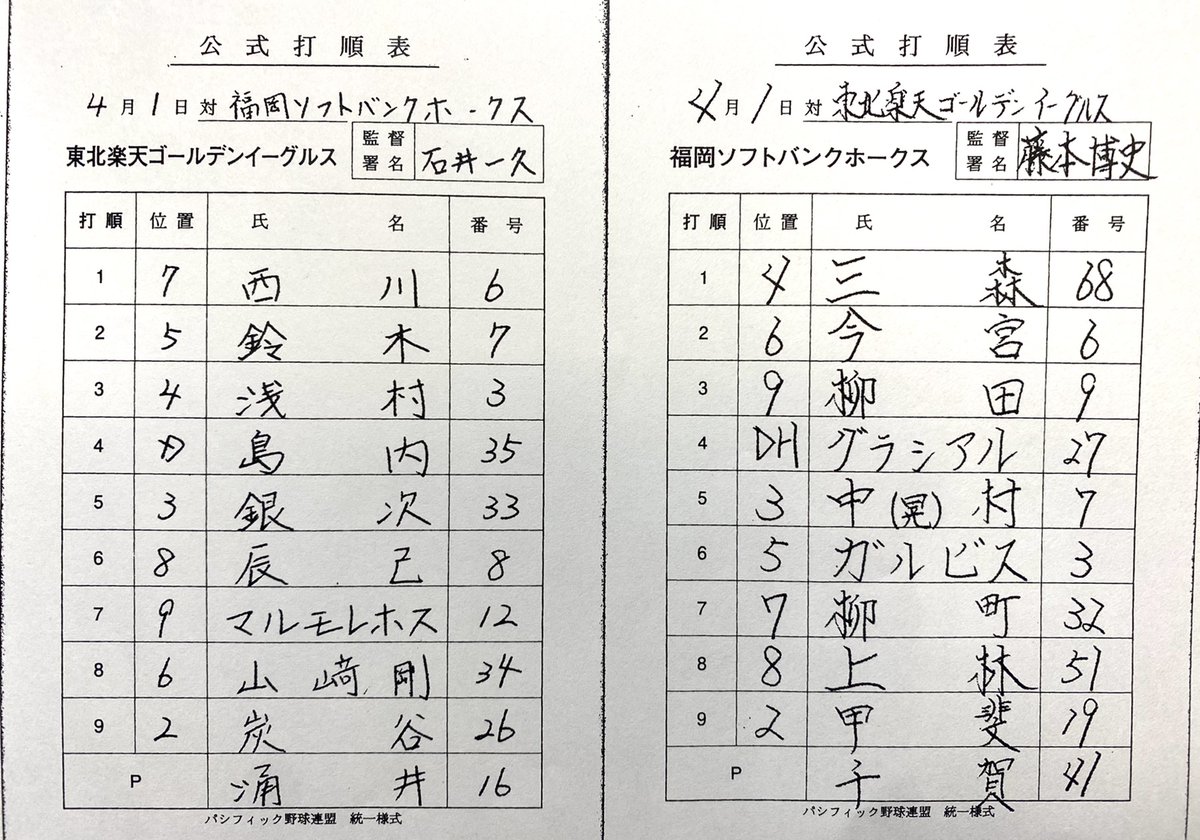 公式打順表
4月1日対 福岡ソフトバンクホークス
東北楽天ゴールデンイーグルス 監督署名 石井一久
打順 位置 氏名 番号
1 7 西川 6
2 5 鈴木 7
3 4 浅村 3
4 D 島内 35
5 3 銀次 33
6 8 辰己 8
7 9 マルモレホス 12
8 6 山﨑剛 34
9 2 炭谷 26
P 涌井 16
パシフィック野球連盟 統一様式
公式打順表
4月1日対 東北楽天ゴールデンイーグルス
福岡ソフトバンクホークス 監督署名 藤本博史
打順 位置 氏名 番号
1 4 三森 68
2 6 今宮 6
3 9 柳田 9
4 DH グラシアル 27
5 3 中(晃)村 7
6 5 ガルビス 3
7 7 柳町 32
8 8 上林 51
9 2 甲斐 19
P 千賀 41
パシフィック野球連盟 統一様式